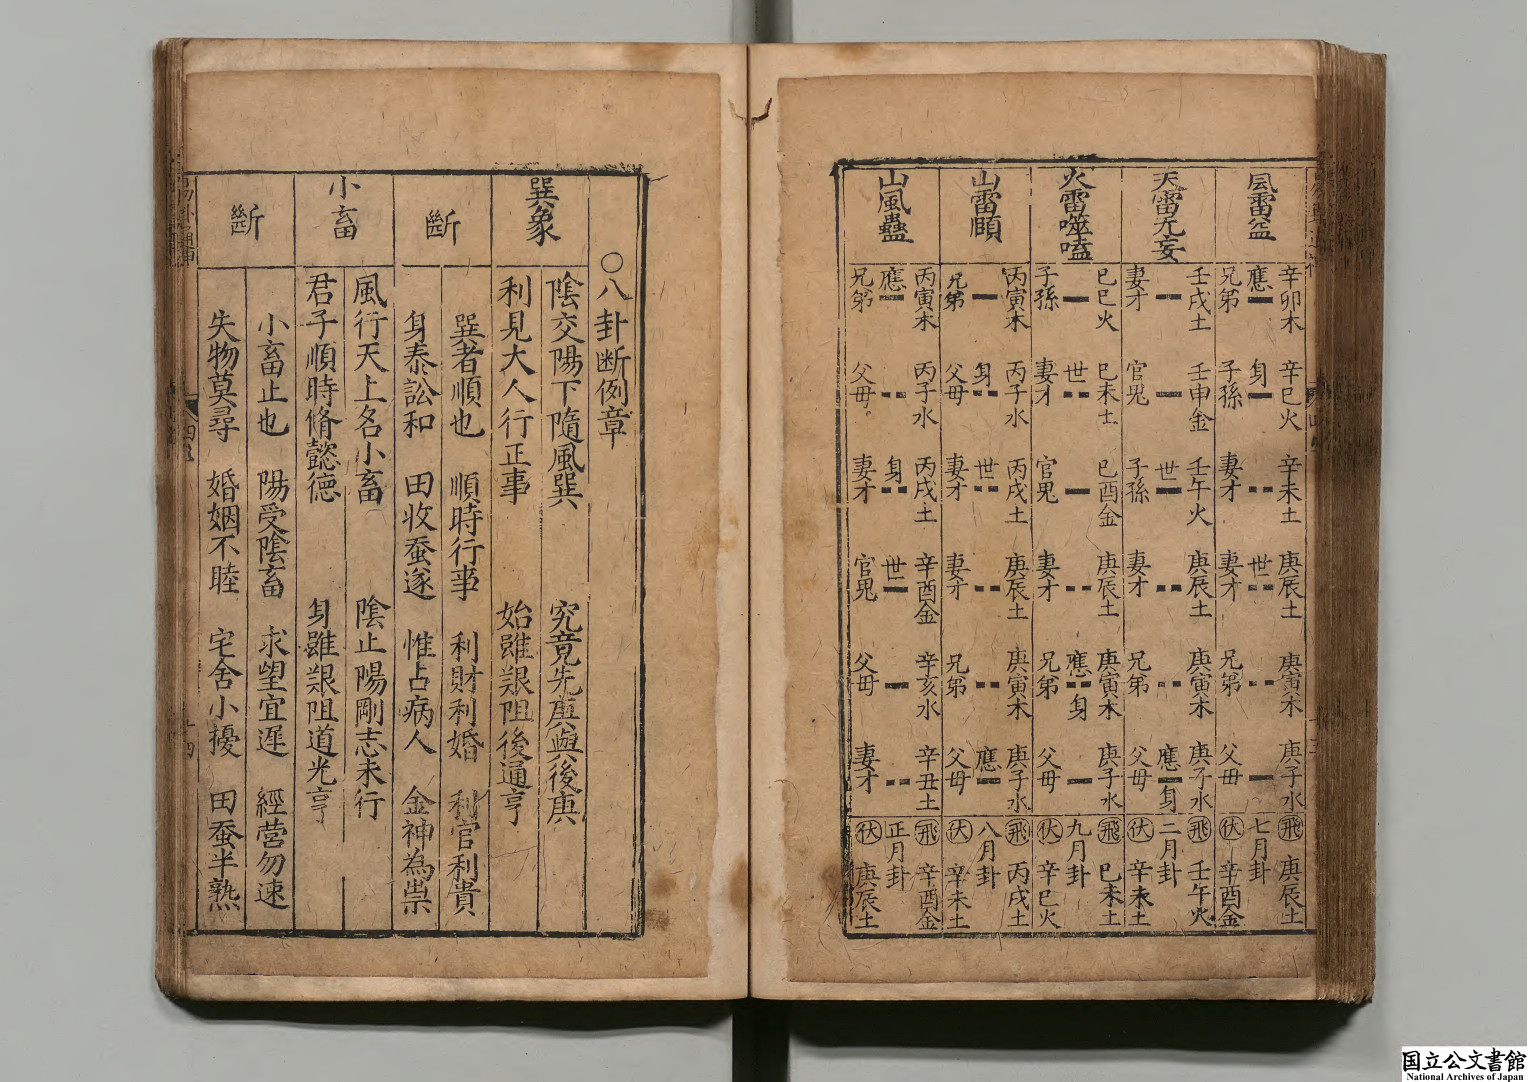 風雷益
辛卯木 辛巳火 辛未土 庚辰土 庚寅木 庚子水 飛 庚辰土
應 身 世 七月卦
兄弟 子孫 妻才 妻才 兄弟 父母 伏 辛酉金
天雷无妄
壬戌土 壬申金 壬午火 庚辰土 庚寅木 庚子水 飛 壬午火
世 應 身 二月卦
妻才 官鬼 子孫 妻才 兄弟 父母 伏 辛未土
火雷噬嗑
己巳火 己未土 己酉金 庚辰土 庚寅木 庚子水 飛 己未土
世 應 身 九月卦
子孫 妻才 官鬼 妻才 兄弟 父母 伏 辛巳火
山雷頤
丙寅木 丙子水 丙戌土 庚辰土 庚寅木 庚子水 飛 丙戌土
身 世 應 八月卦
兄弟 父母 妻才 妻才 兄弟 父母 伏 辛未土
山風蠱
丙寅木 丙子水 丙戌土 辛酉金 辛亥水 辛丑土 飛 辛酉金
應 身 世 正月卦
兄弟 父母 妻才 官鬼 父母 妻才 伏 庚辰土
○八卦断例章
巽象
陰交陽下隨風巽 究竟先庚與後庚
利見大人行正事 始雖艱阻後通亨
斷
巽者順也 順時行事 利財利婚 利官利貴
身泰訟和 田收蚕遂 惟占病人 金神為祟
小畜
風行天上名小畜 陰止陽剛志未行
君子順時脩懿德 身雖艱阻道光亨
斷
小畜止也 陽受陰畜 求望宜遲 經营勿速
失物莫尋 婚姻不睦 宅舍小擾 田蚕半熟
国立公文書館
National Archives of Japan